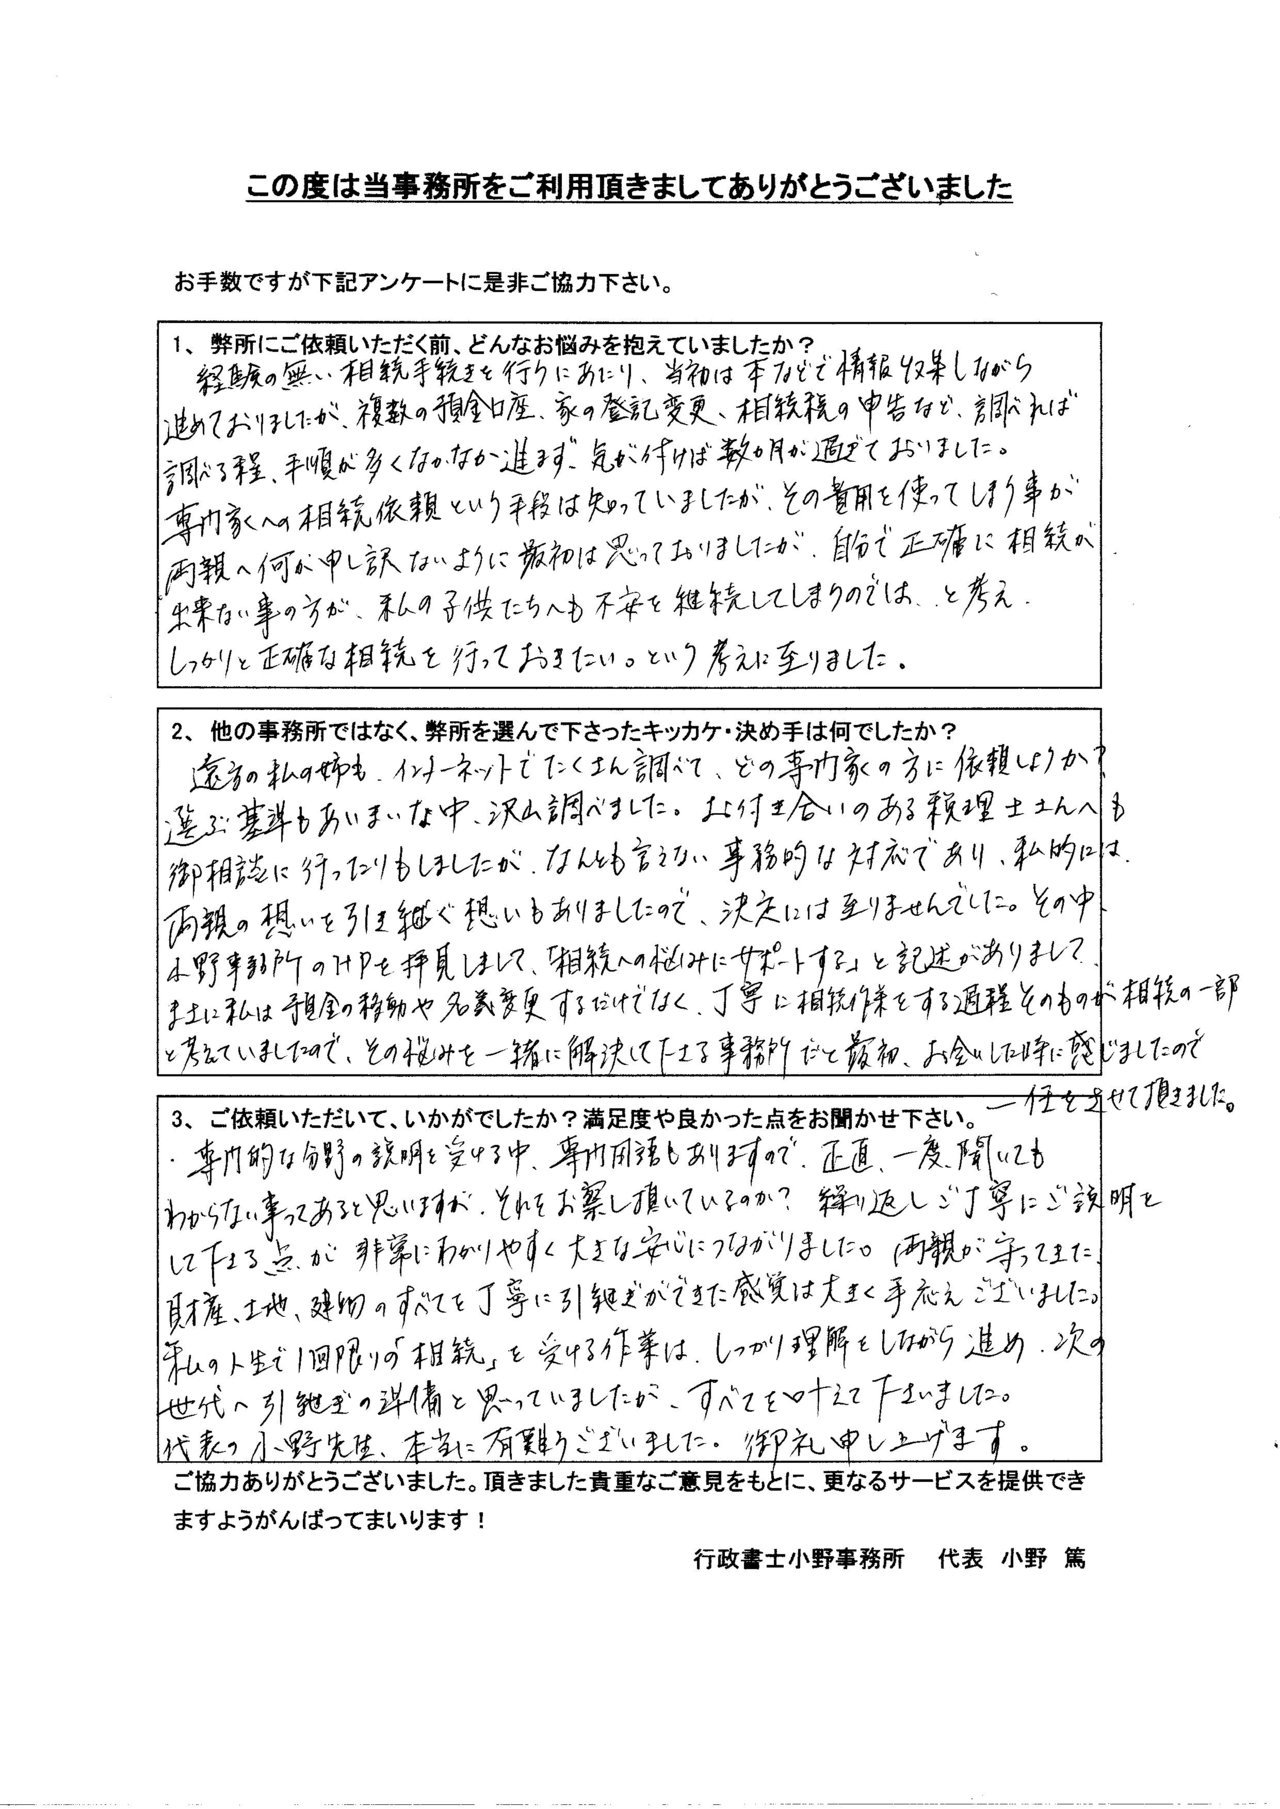 この度は当事務所をご利用頂きましてありがとうございました
お手数ですが下記アンケートに是非ご協力下さい。
1、弊所にご依頼いただく前、どんなお悩みを抱えていましたか？
経験の無い相続手続きを行うにあたり、当初は本などで情報収集しながら
進めておりましたが、複数の預金口座、家の登記変更、相続税の申告など、調べれば
調べる程、手順が多くなかなか進まず、気が付けば数カ月が過ぎておりました。
専門家への相続依頼という手段は知っていましたが、その費用を使ってしまう事が
両親へ何か申し訳ないように最初は思っておりましたが、自分で正確に相続が
出来ない事の方が、私の子供たちへも不安を継続してしまうのでは、と考え、
しっかりと正確な相続を行っておきたい。という考えに至りました。
2、他の事務所ではなく、弊所を選んで下さったキッカケ・決め手は何でしたか？
遠方の私の姉も、インターネットでたくさん調べて、どの専門家の方に依頼しようか？
選ぶ基準もあいまいな中、沢山調べました。お付き合いのある税理士さんへも
御相談に行ったりもしましたが、なんとも言えない事務的な対応であり、私的には、
両親の想いを引き継ぐ想いもありましたので、決定には至りませんでした。その中、
小野事務所のHPを拝見しまして、「相続への悩みにサポートする」と記述がありまして、
まさに私は預金の移動や名義変更するだけでなく、丁寧に相続作業をする過程そのものが相続の一部
と考えていましたので、その悩みを一緒に解決して下さる事務所だと最初、お会いした時に感じましたので
一任をさせて頂きました。
3、ご依頼いただいて、いかがでしたか？満足度や良かった点をお聞かせ下さい。
・専門的な分野の説明を受ける中、専門用語もありますので、正直、一度、聞いても
わからない事ってあると思いますが、それをお察し頂いているのか？繰り返しご丁寧にご説明を
して下さる点が非常にわかりやすく大きな安心につながりました。両親が守ってきた
財産、土地、建物のすべてを丁寧に引継ぎができた感覚は大きく手応えございました。
私の人生で1回限りの「相続」を受ける作業は、しっかり理解をしながら進め、次の
世代へ引継ぎの準備と思っていましたが、すべてを叶えて下さいました。
代表の小野先生、本当に有難うございました。御礼申し上げます。
ご協力ありがとうございました。頂きました貴重なご意見をもとに、更なるサービスを提供でき
ますようがんばってまいります！
行政書士小野事務所　代表　小野　篤